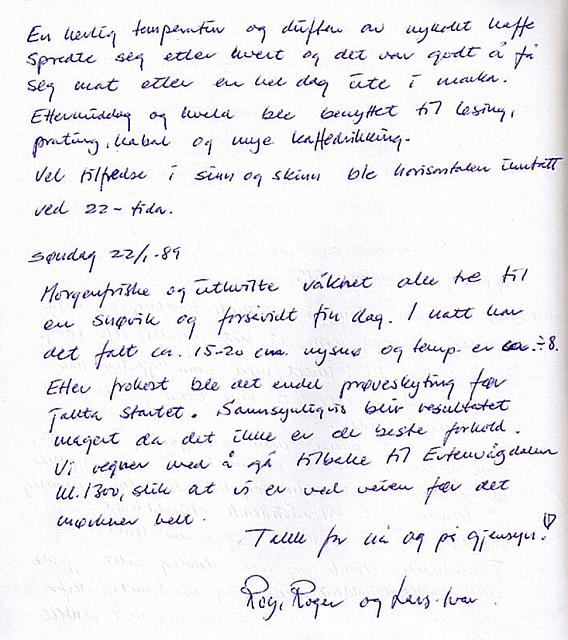 En herlig temperatur og duften av nykokt kaffe
spredte seg etter hvert og det var godt å få
seg mat etter en hel dag ute i marka.
Ettermiddag og kveld ble benyttet til lesing,
prating, kabal og mye kaffedrikking.
Vel tilfredse i sinn og skinn ble horisontalen inntatt
ved 22-tida.
Søndag 22/1-89
Morgenfriske og uthvilte våknet alle tre til
en snørik og forsåvidt fin dag. I natt har
det falt ca. 15-20 cm. nysnø og temp. er ca. ÷8.
Etter frokost ble det endel prøveskyting før
jakta startet. Sannsynligvis blir resultatet
magert da det ikke er de beste forhold.
Vi regner med å gå tilbake til Evtenvågdalen
kl. 1300, slik at vi er ved veien før det
mørkner helt.
Takk for nå og på gjensyn!
Roy, Roger og Lars-Ivar.